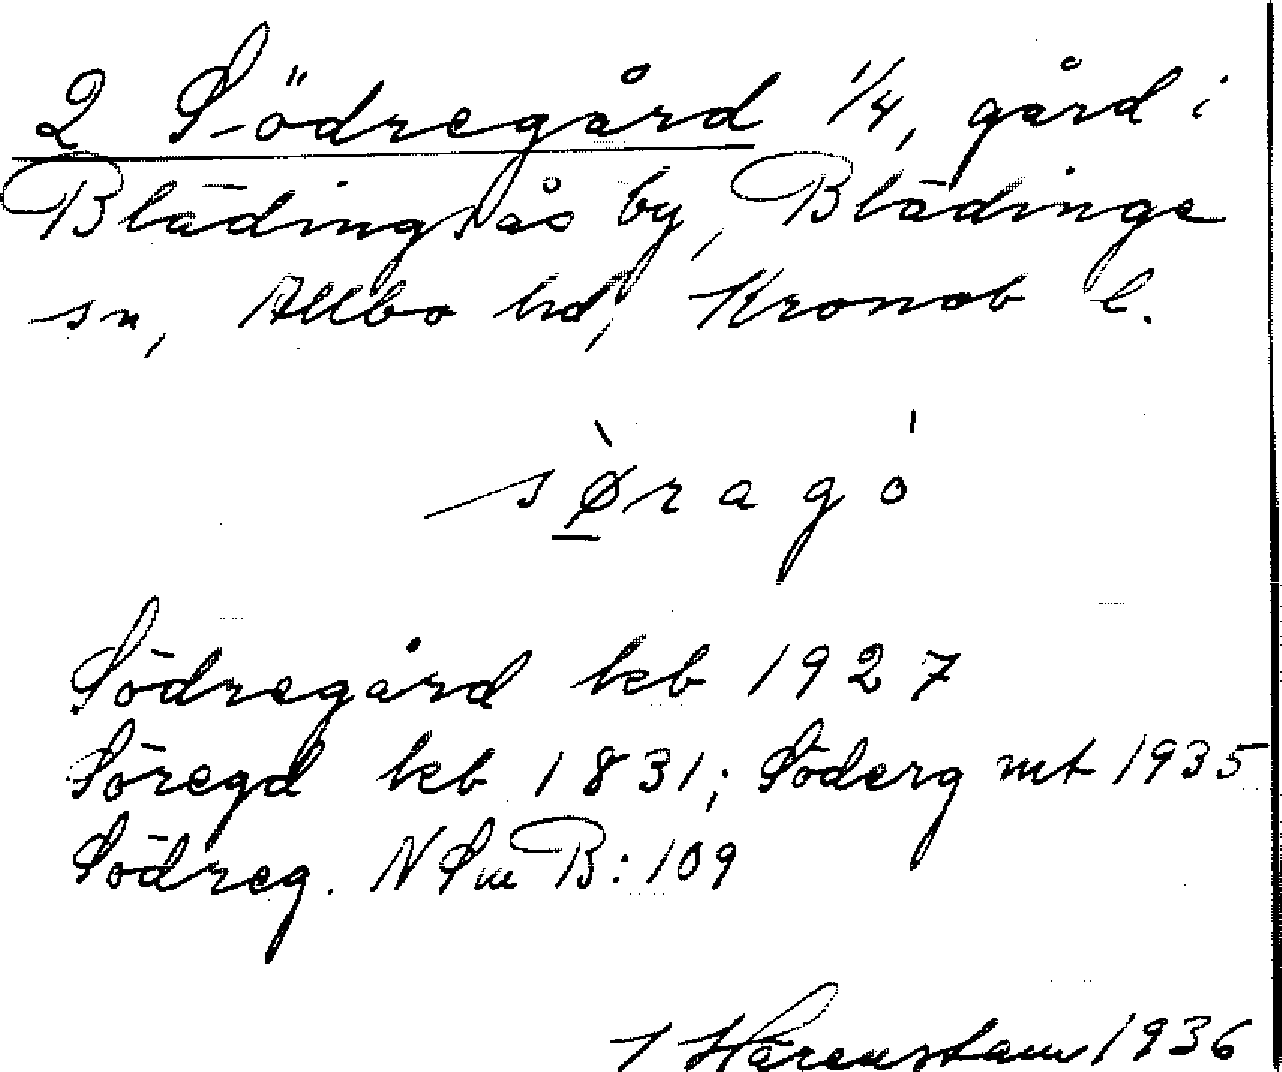 2 Södregård 1/4, gård i
Blädingsås by, Blädinge
sn, Allbo hd, Kronob l.
sø̀ragó
Södregård kb 1927
Söregd kb 1831; Söderg mt 1935
Södreg. N Sm B: 109
S Härenstam 1936